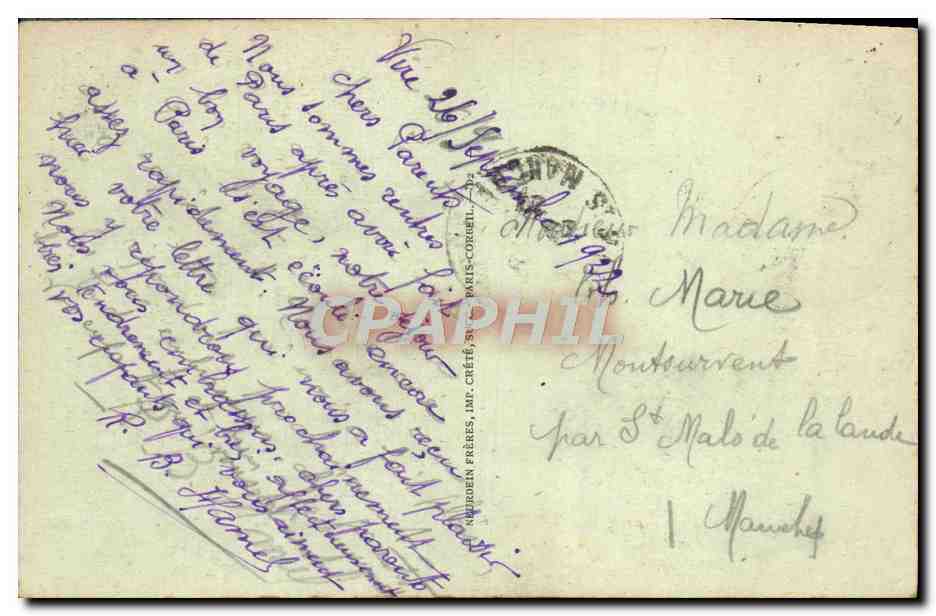 Vire 26 Septembre 19
Chers Parents
Nous sommes rentrés
de Paris après avoir fait
un bon voyage, notre séjour
a Paris s'est écoulé encore
assez rapidement. Nous avons reçu
hier votre lettre qui nous a fait plaisir
nous y répondrons prochainement
Nous vous embrassons, chers parents
bien tendrement et affectueusement
vos enfants qui vous aiment
R. B. Hamel
NEURDEIN FRÈRES, IMP. CRÉTÉ, SUC. PARIS-CORBEIL.
Monsieur Madame
Marie
Montsurvent
par St Malo de la lande
Manche
CPAPHIL